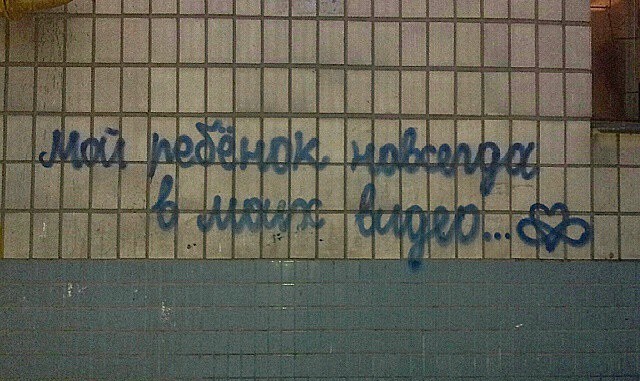 мой ребёнок новсегда
в моих видео...